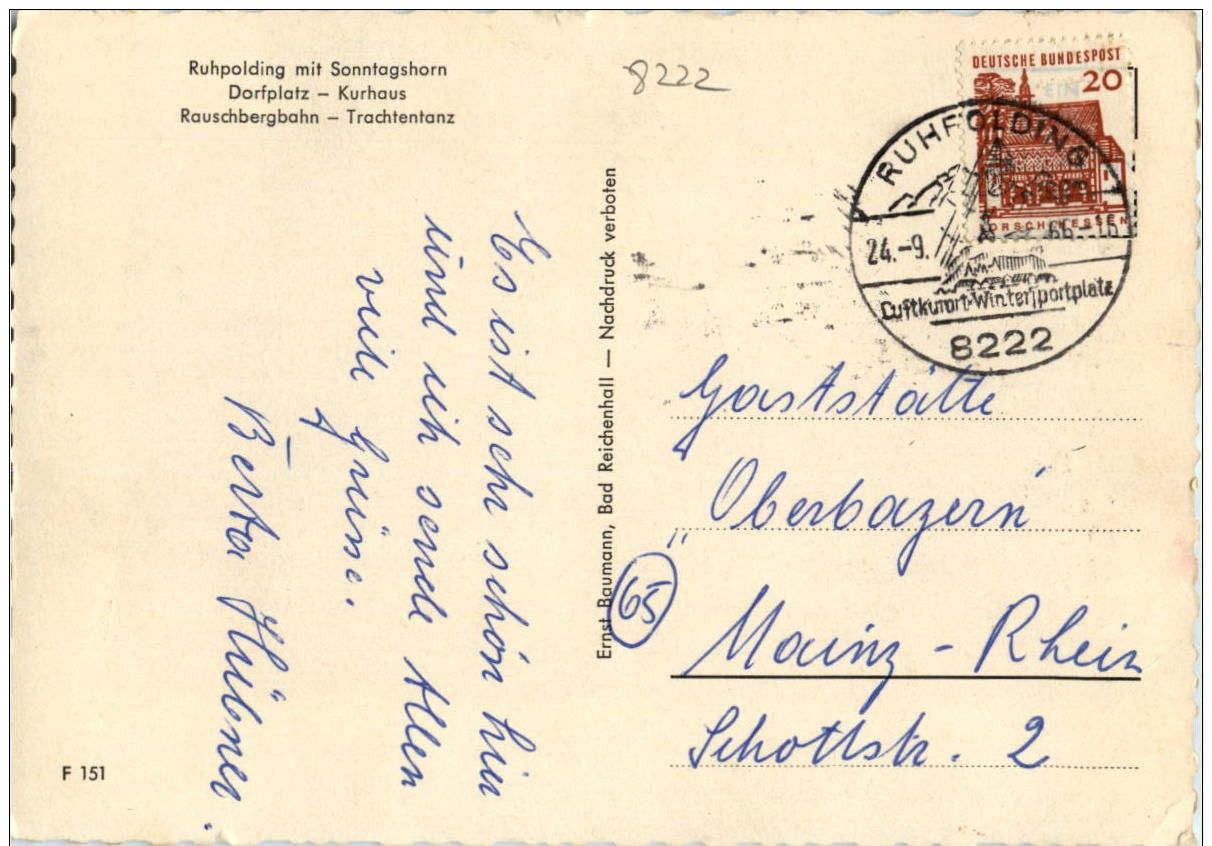 Ruhpolding mit Sonntagshorn
Dorfplatz – Kurhaus
Rauschbergbahn – Trachtentanz
8222
DEUTSCHE BUNDESPOST
20
LORSCH HESSEN
RUHPOLDING
24.-9. 66-16
Luftkurort-Wintersportplatz
8222
Es ist sehr schön hier
und ich sende Allen
viele Grüsse.
Berta Hübner.
Ernst Baumann, Bad Reichenhall — Nachdruck verboten
Gaststätte
„Oberbayern"
65
Mainz - Rhein
Schottstr. 2
F 151